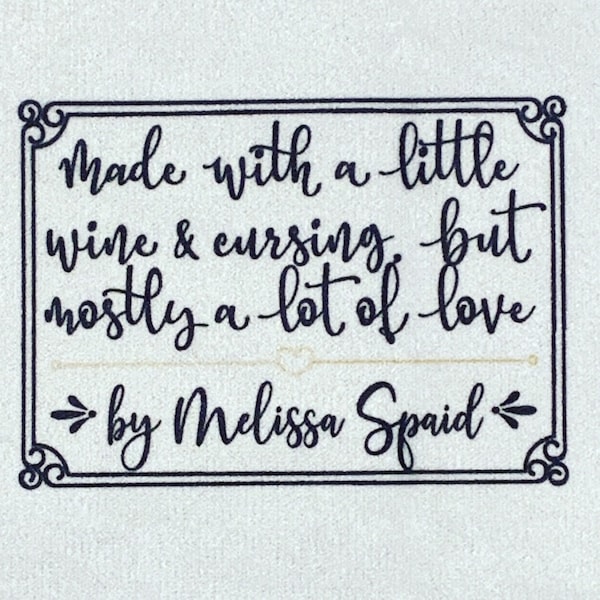 Made with a little
wine & cursing, but
mostly a lot of love
by Melissa Spaid